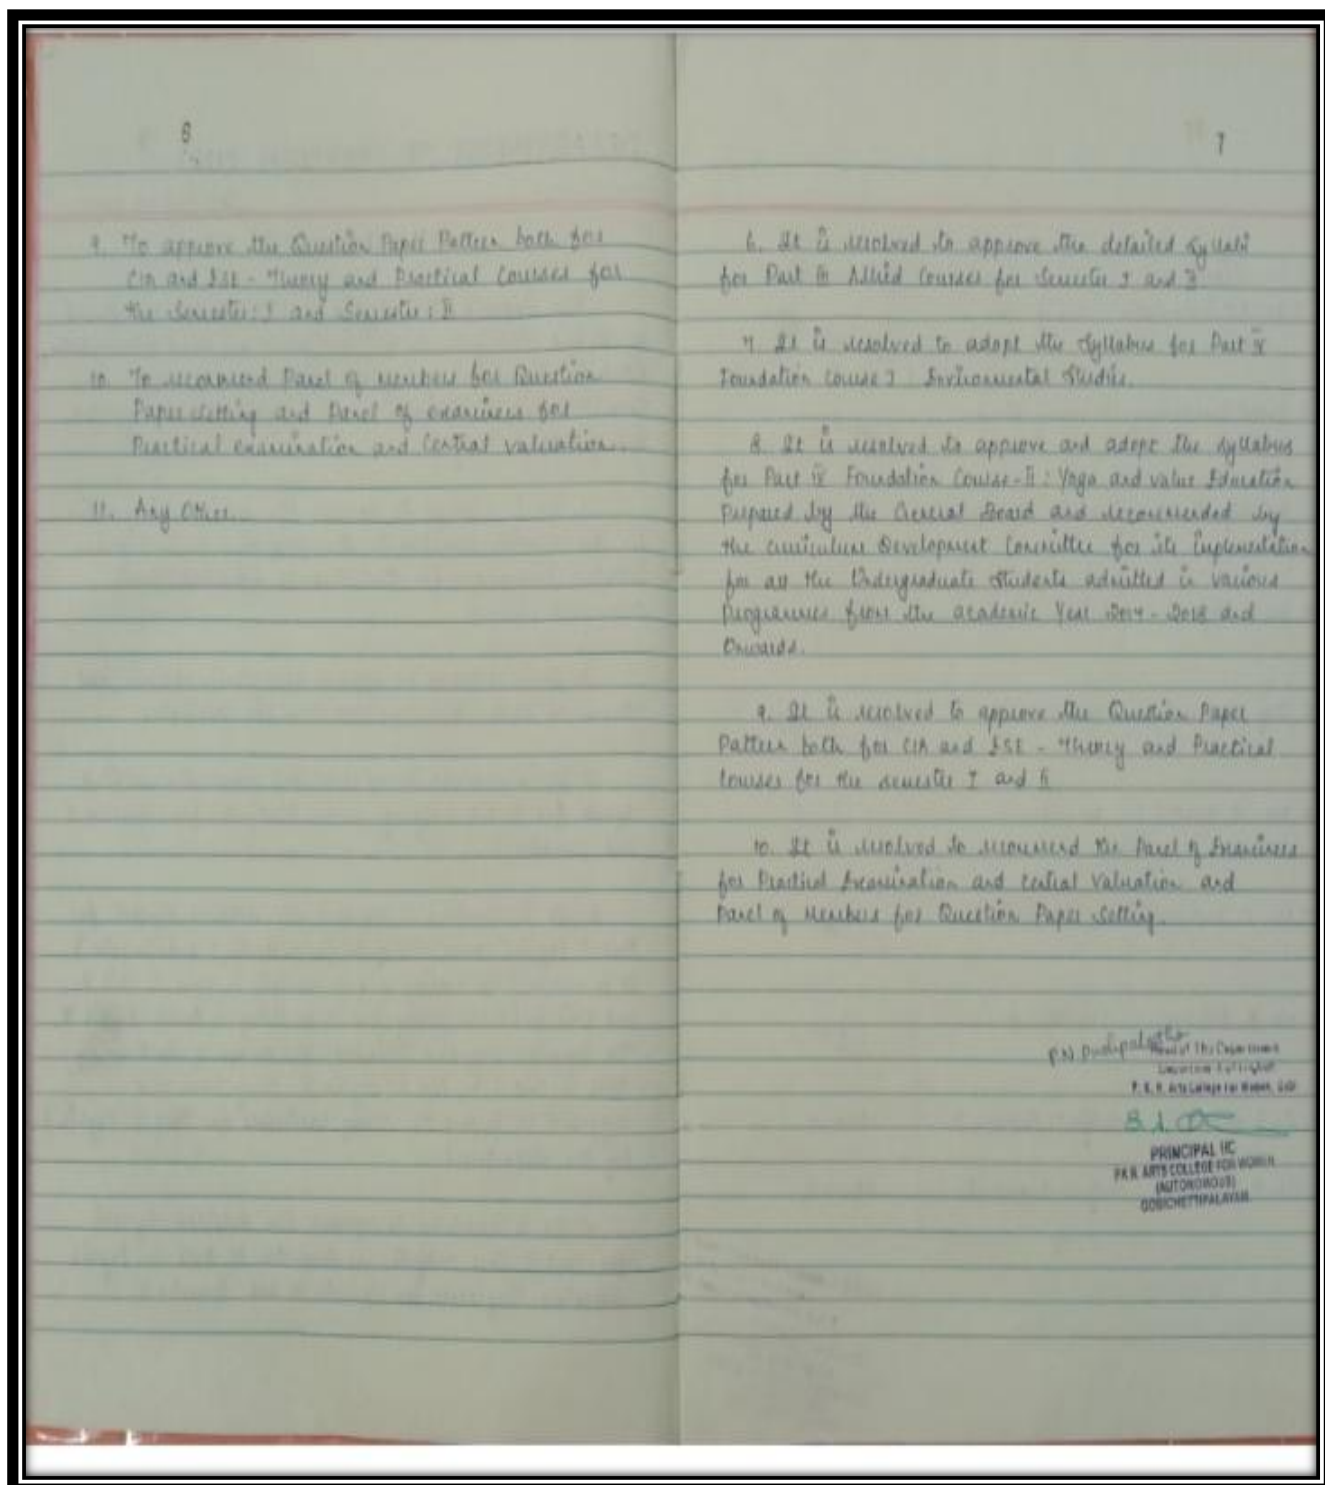 6
9. To approve the Question Paper Pattern both for
CIA and ESE - Theory and Practical Courses for
the Semester: I and Semester: II
10. To recommend Panel of members for Question
Paper Setting and Panel of examiners for
Practical examination and Central valuation.
11. Any Other.
7
6. It is resolved to approve the detailed Syllabi
for Part III Allied Courses for Semester I and II
7. It is resolved to adopt the Syllabus for Part IV
Foundation Course I Environmental Studies.
8. It is resolved to approve and adopt the Syllabus
for Part IV Foundation Course-II: Yoga and value Education
Prepared by the General Board and recommended by
the curriculum Development Committee for its Implementation
for all the Undergraduate Students admitted in various
Programmes from the academic Year 2017-2018 and
Onwards.
9. It is resolved to approve the Question Paper
Pattern both for CIA and ESE - Theory and Practical
Courses for the semester I and II
10. It is resolved to recommend the Panel of Examiners
for Practical Examination and Central Valuation and
Panel of Members for Question Paper Setting.
P.N.
Head of the Department
Department of English
P. K. R. Arts College For Women, Gobi
PRINCIPAL I/C
P.K.R. ARTS COLLEGE FOR WOMEN
(AUTONOMOUS)
GOBICHETTIPALAYAM